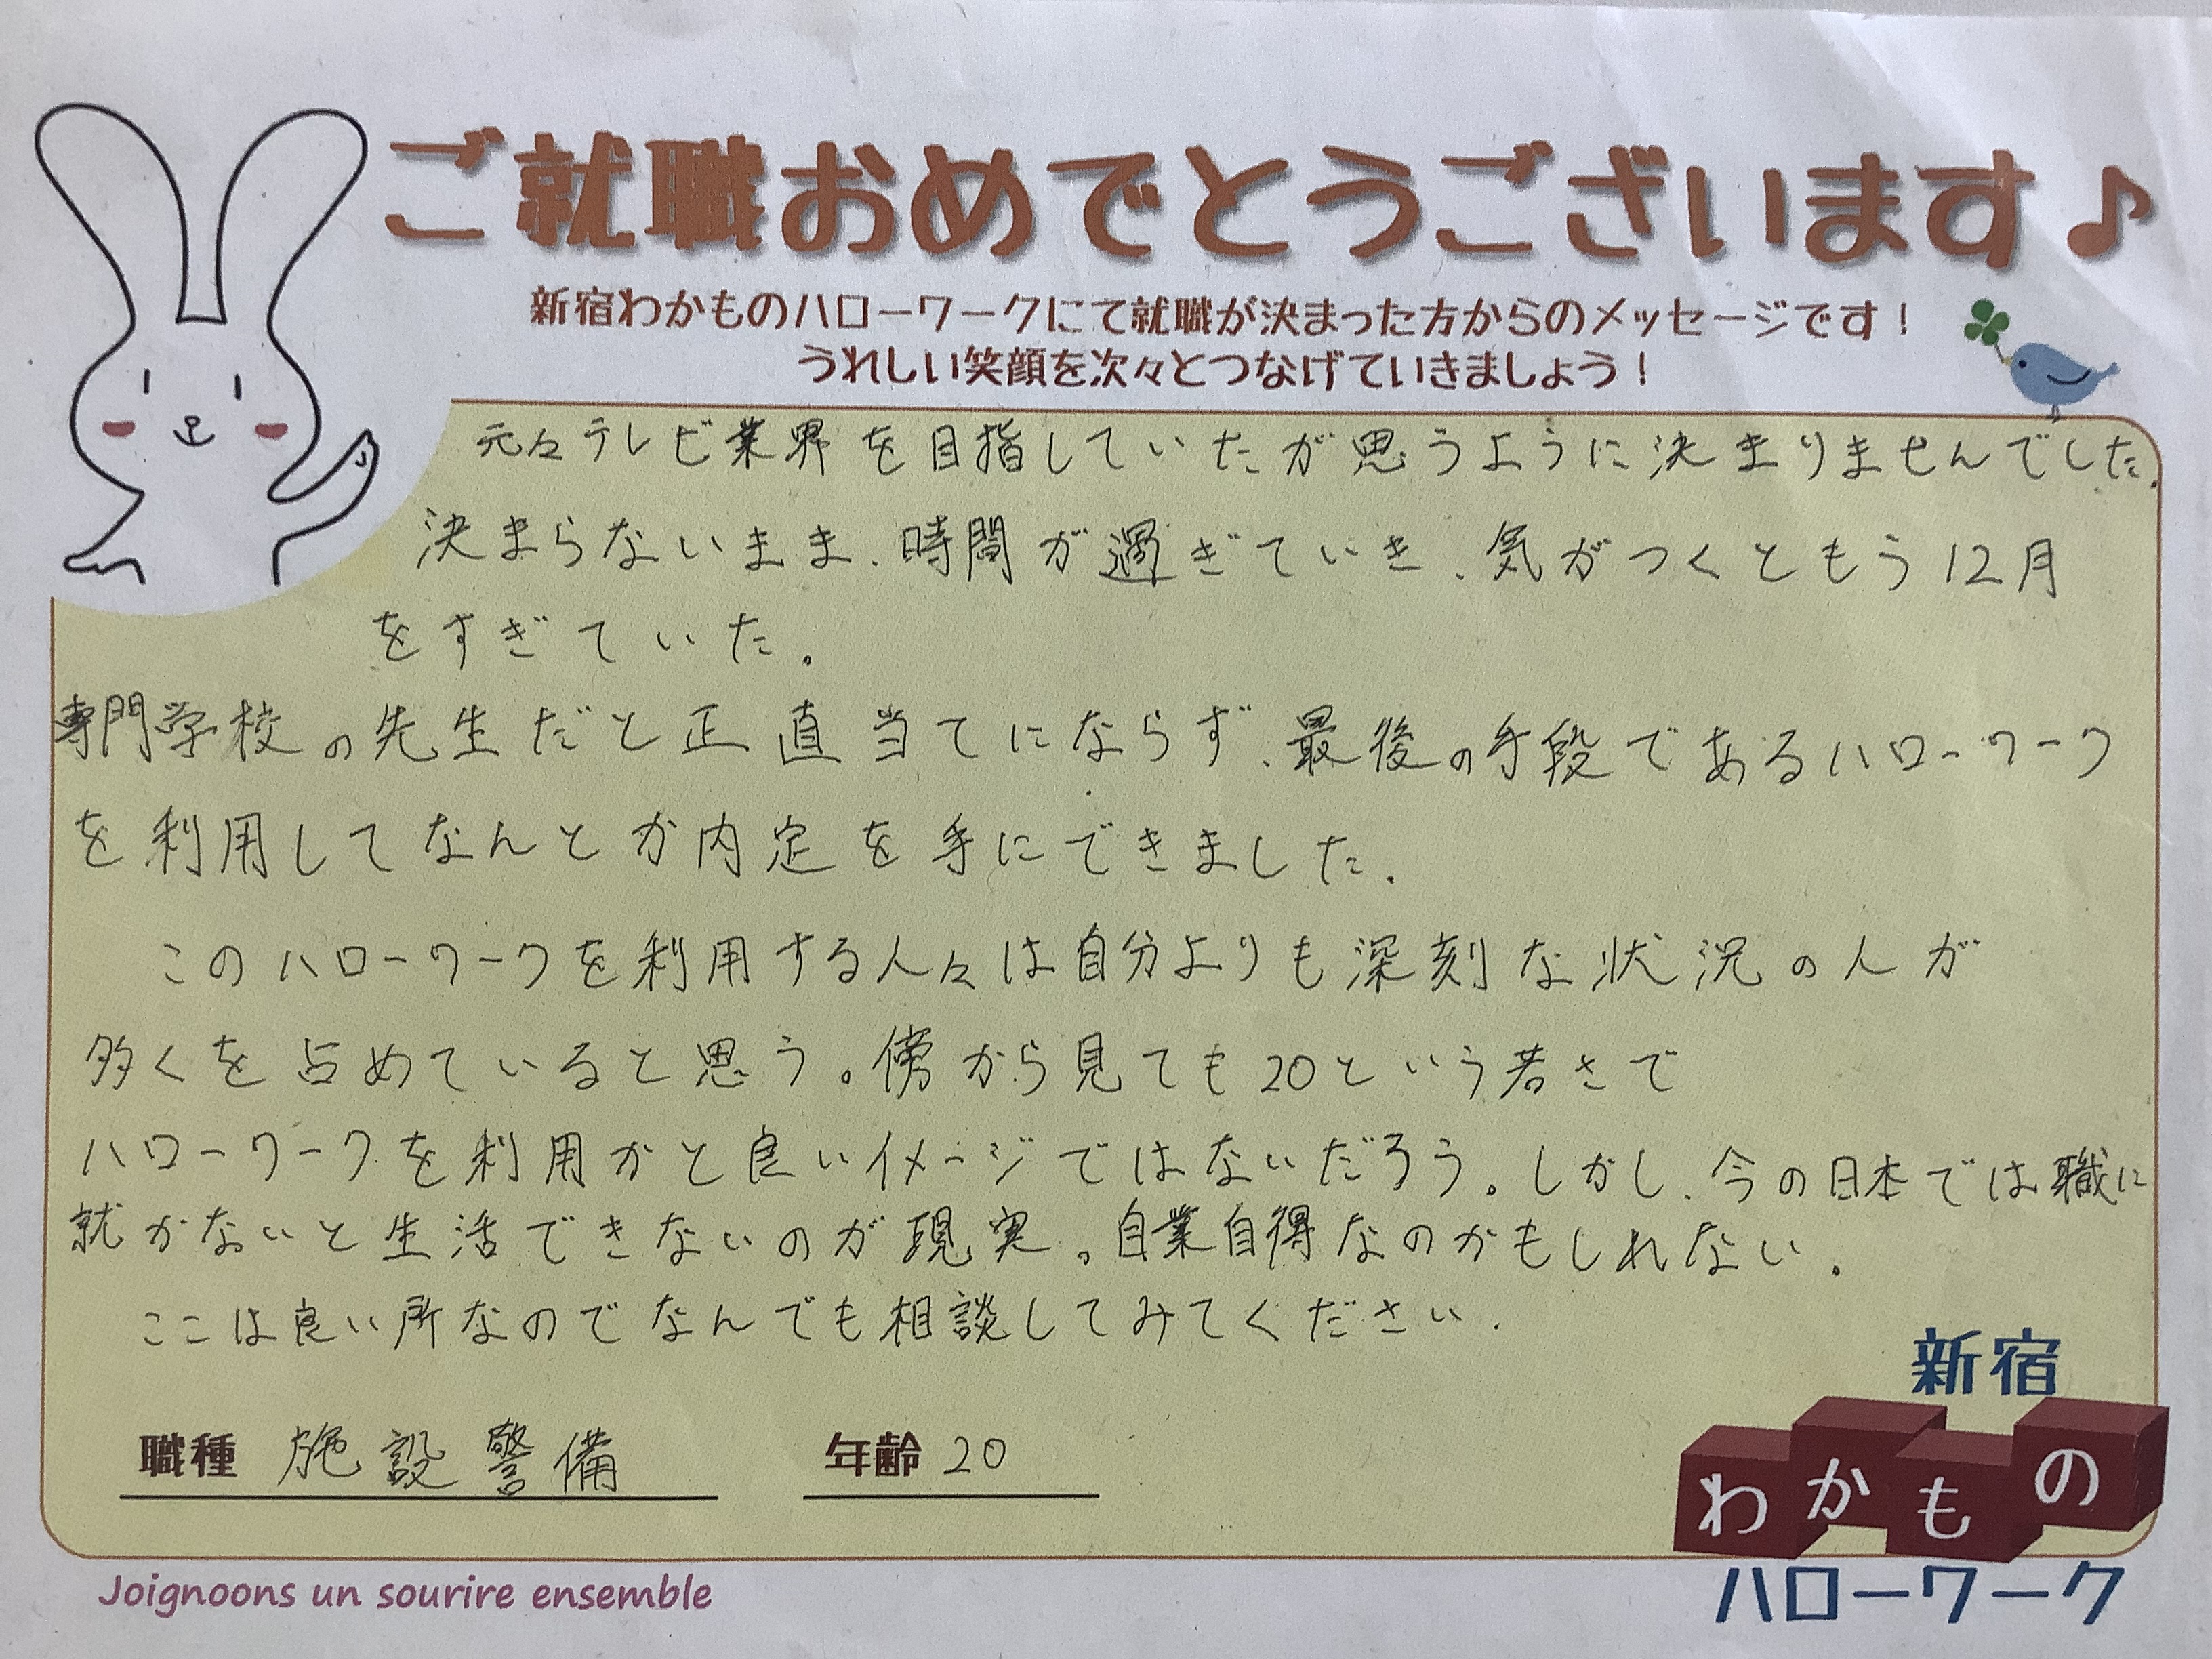 ご就職おめでとうございます♪
新宿わかものハローワークにて就職が決まった方からのメッセージです！
うれしい笑顔を次々とつなげていきましょう！
元々テレビ業界を目指していたが思うように決まりませんでした.
決まらないまま、時間が過ぎていき、気がつくともう12月
をすぎていた。
専門学校の先生だと正直当てにならず、最後の手段であるハローワーク
を利用してなんとか内定を手にできました.
このハローワークを利用する人々は自分よりも深刻な状況の人が
多くを占めていると思う。傍から見ても20という若さで
ハローワークを利用かと良いイメージではないだろう。しかし、今の日本では職に
就かないと生活できないのが現実。自業自得なのかもしれない。
ここは良い所なのでなんでも相談してみてください.
職種 施設警備 年齢 20
新宿
わかもの
ハローワーク
Joignoons un sourire ensemble